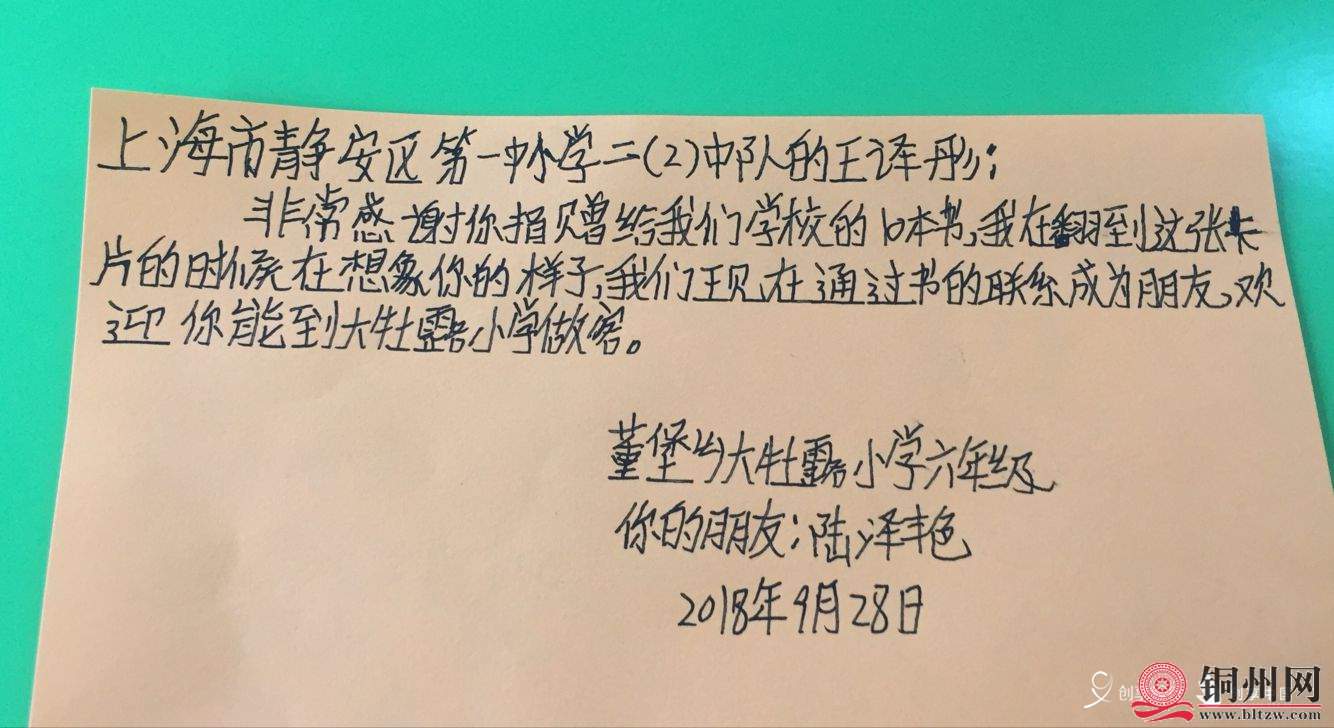 上海市静安区第一中心小学二(2)中队的王译彤:
非常感谢你捐赠给我们学校的6本书,我在翻到这张卡
片的时候在想象你的样子,我们现在通过书的联系成为朋友,欢
迎你能到大牡露小学做客。
董堡乡大牡露小学六年级
你的朋友:陆泽艳
2018年9月28日
铜州网
www.bltzw.com